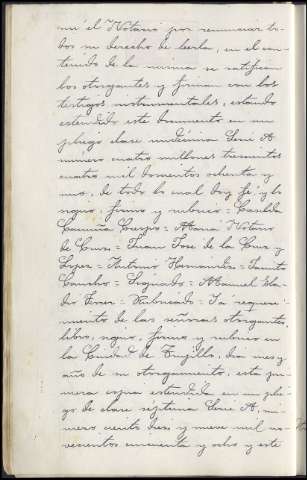 mi el Notario por renunciar to-
dos su derecho de leerla, en el con-
tenido de la misma se ratifican
los otorgantes y firman con los
testigos instrumentales, estando
estendido este documento en un
pliego clase undécima Serie A
número cuatro millones trescientos
cuatro mil doscientos ochenta y
uno, de todo lo cual doy fé y lo
signo, firmo y rubrico = Casilda
Crespo = Maria Notario
de = Juan Jose de la Cruz y
Lopez = Antonio Hernandez = Jacinto
Cancho = Signado = Manuel Ela-
dio Ferrer = Rubricado = Y á requeri-
miento de las señoras otorgantes,
libro, signo, firmo y rubrico en
la Ciudad de Trujillo, dia mes y
año de su otorgamiento, esta pri-
mera copia estendida en un plie-
go de clase septima Serie A, nú-
mero ciento diez y nueve mil no-
vecientos cincuenta y ocho y este